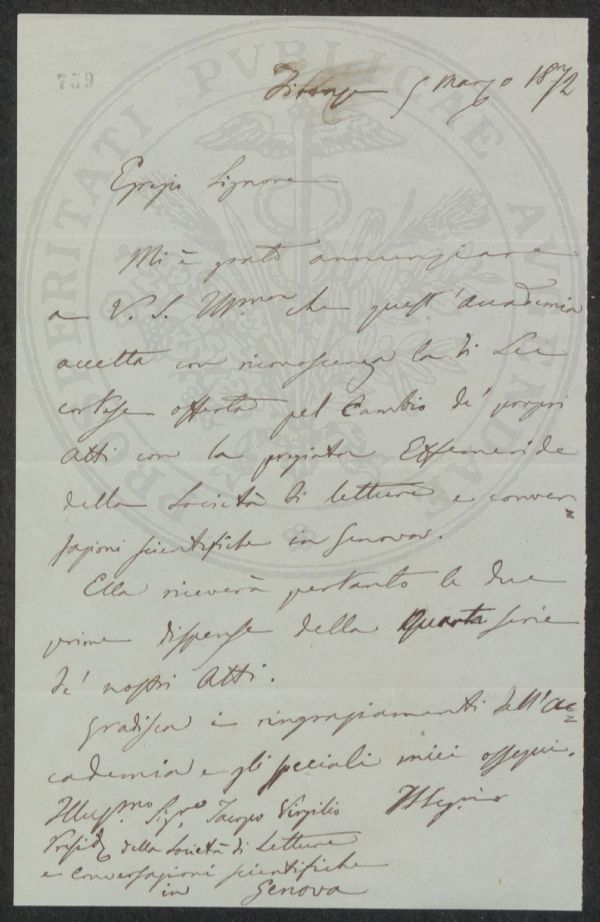 759
Firenze 5 Marzo 1872
Egregio Signore
Mi è grato annunziare
a V. S. Ill.ma che quest'Accademia
accetta con riconoscenza la di Lei
cortese offerta pel Cambio de' propri
Atti con la pregiata Effemeride
della Società di letture e conver=
sazioni scientifiche in Genova.
Ella riceverà pertanto le due
prime dispense della Quarta serie
de' nostri Atti.
Gradisca i ringraziamenti dell'Ac=
cademia e gli speciali miei ossequi.
Illus.mo Sign.re Jacopo Virgilio
Presid.e della Società di Letture
e Conversazioni scientifiche
in Genova
PROSPERITATI PVBLICAE AVGENDAE